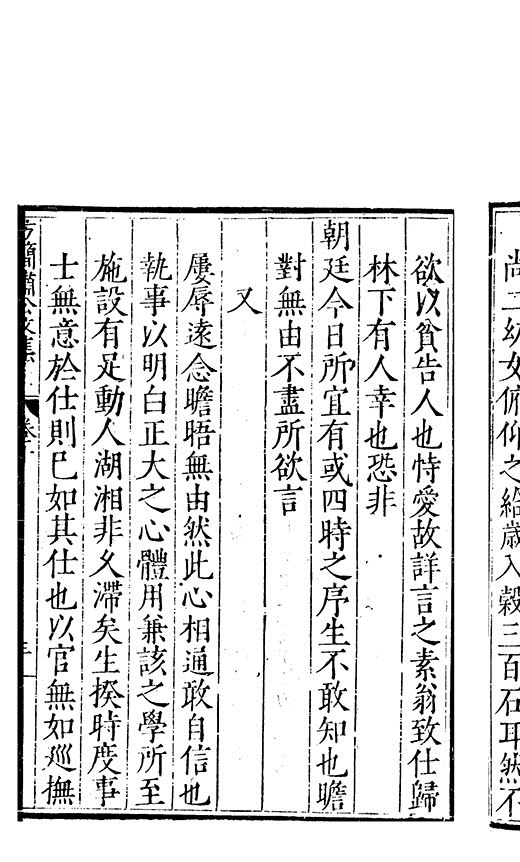 尚二幼女俯仰之給歲入穀三百石耳然不
欲以貧告人也恃愛故詳言之素翁致仕歸
林下有人幸也恐非
朝廷今日所宜有或四時之序生不敢知也瞻
對無由不盡所欲言
又
屢辱遠念瞻晤無由然此心相通敢自信也
執事以明白正大之心體用兼該之學所至
施設有足動人湖湘非久滯矣生揆時度事
士無意於仕則已如其仕也以官無如巡撫
方簡肅公文集
卷十